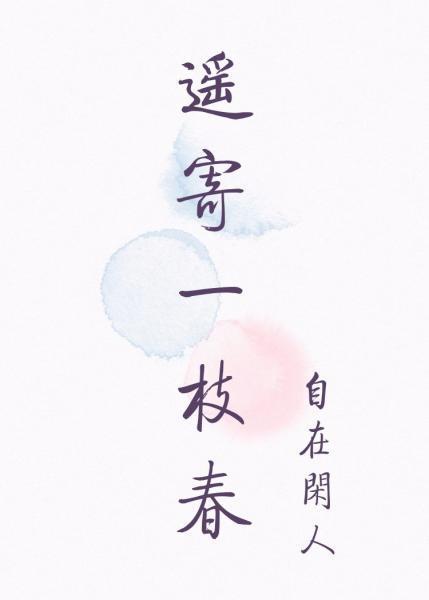 遥寄一枝春
自在閑人